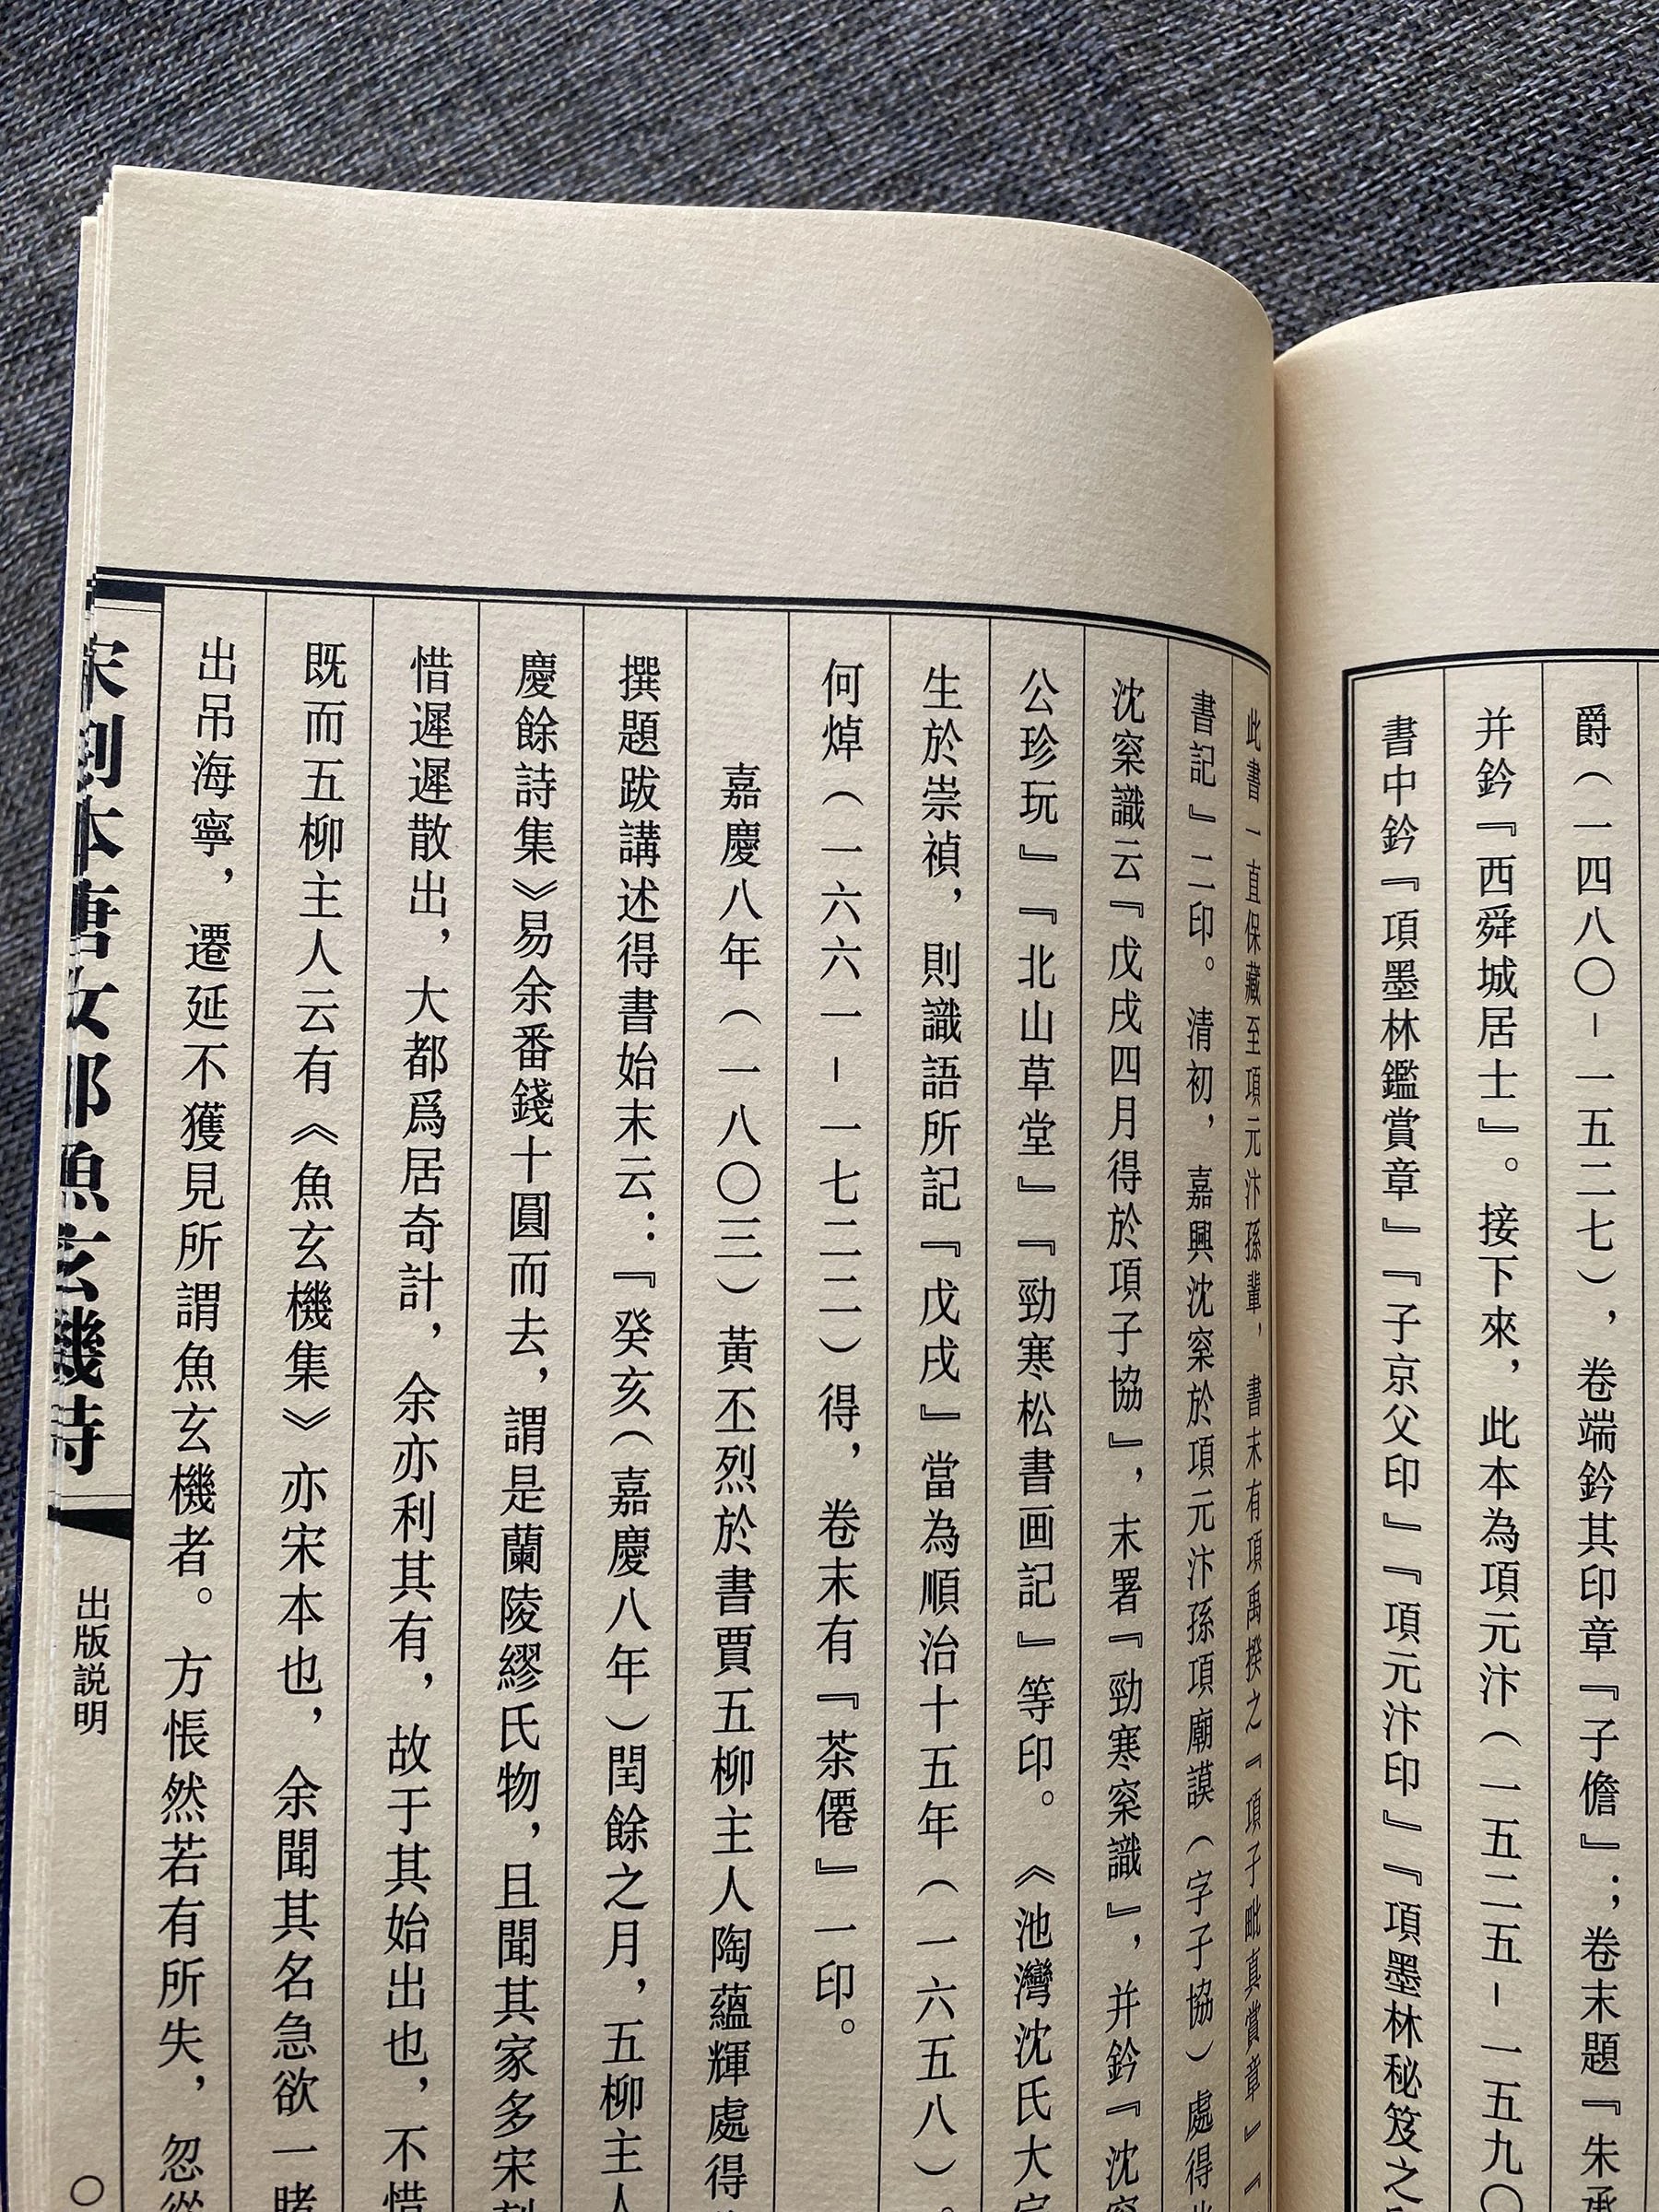 爵（一四八〇－一五二七），卷端鈐其印章『子儋』；卷末題『朱承
并鈐『西舜城居士』。接下來，此本為項元汴（一五二五－一五九〇
書中鈐『項墨林鑑賞章』『子京父印』『項元汴印』『項墨林秘笈之
此書一直保藏至項元汴孫輩，書末有項禹揆之『項子毗真賞章』『
書記』二印。清初，嘉興沈寀於項元汴孫項廟謨（字子協）處得
沈寀識云『戊戌四月得於項子協』，末署『勁寒寀識』，并鈐『沈寀
公珍玩』『北山草堂』『勁寒松書画記』等印。《池灣沈氏大宗
生於崇禎，則識語所記『戊戌』當為順治十五年（一六五八）。
何焯（一六六一－一七二二）得，卷末有『茶僊』一印。
嘉慶八年（一八〇三）黃丕烈於書賈五柳主人陶蘊輝處得
撰題跋講述得書始末云：『癸亥（嘉慶八年）閏餘之月，五柳主人
慶餘詩集》易余番錢十圓而去，謂是蘭陵繆氏物，且聞其家多宋刻
惜遲遲散出，大都爲居奇計，余亦利其有，故于其始出也，不惜
既而五柳主人云有《魚玄機集》亦宋本也，余聞其名急欲一睹
出吊海寧，遷延不獲見所謂魚玄機者。方悵然若有所失，忽從
宋刻本唐女郎魚玄機詩
出版説明
〇